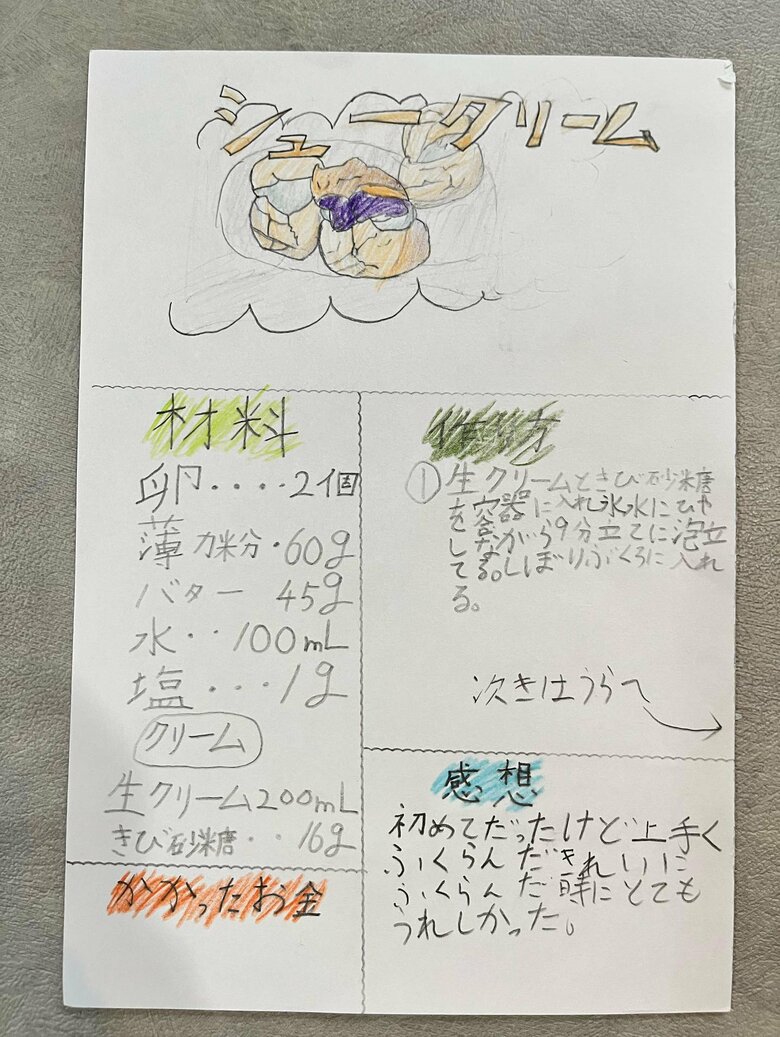 シュークリーム
材料
卵・・・・2個
薄力粉・60g
バター 45g
水・・100mL
塩・・・1g
クリーム
生クリーム200mL
きび砂糖・・16g
かかったお金
作り方
①生クリームときび砂糖
を容器に入れ氷水にひや
しながら9分立てに泡立
てる。しぼりぶくろに入れ
る。
次きはうらへ
感想
初めてだったけど上手く
ふくらんだきれいに
ふくらんだ時にとても
うれしかった。